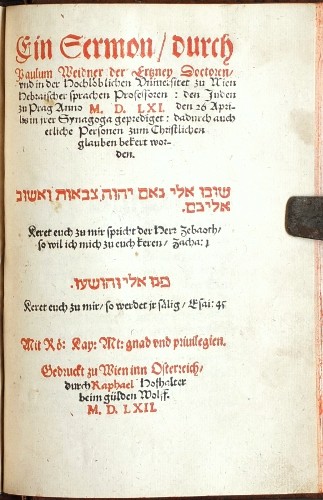 Ein Sermon/ durch
Paulum Weidner der Ertzney Doctoren/
vnd in der Hochlöblichen Vniuersitet zu Wien
Hebraischer sprachen Professoren : den Juden
zu Prag Anno M. D. LXI. den 26 Apri-
lis in jrer Synagoga geprediget : dadurch auch
etliche Personen zum Christlichen
glauben bekert wor-
den.
שובו אלי נאם יהוה צבאות ואשוב
אליכם.
Keret euch zu mir spricht der Herr Zebaoth/
so wil ich mich zu euch keren/ Zacha: 1
פנו אלי והושעו.
Keret euch zu mir/ so werdet jr sälig/ Esai: 45
Mit Rö: Kay: Mt: gnad vnd priuilegien.
Gedruckt zu Wien inn Osterreich/
durch Raphael Hofhalter
beim gülden Wolff.
M. D. LXII.